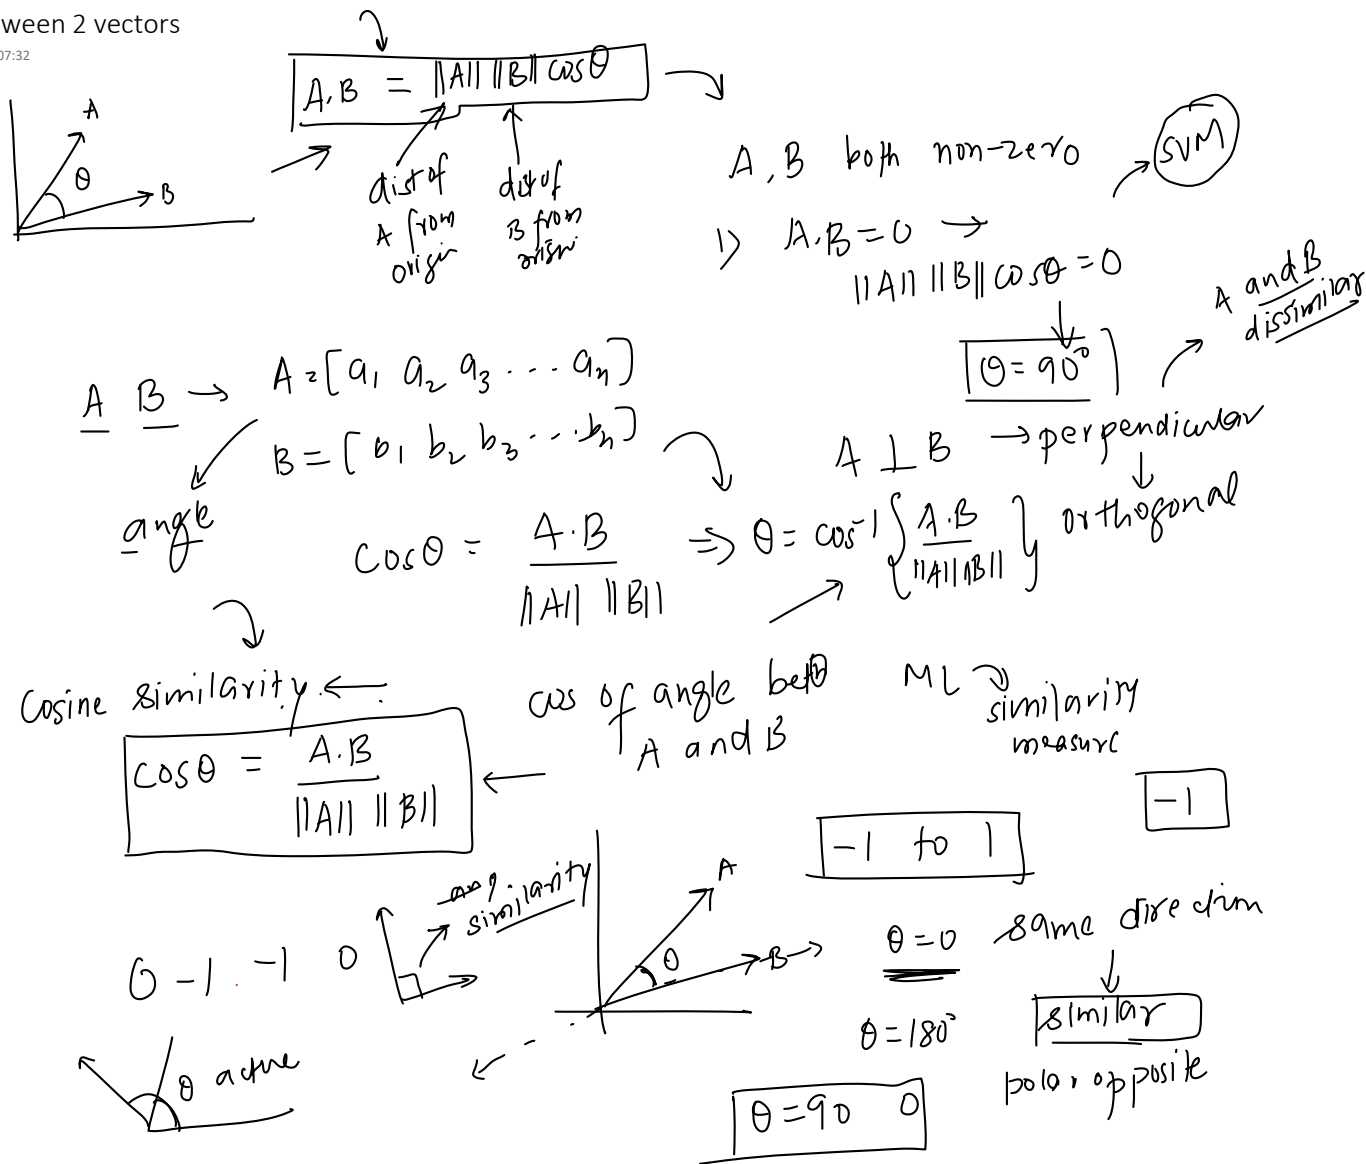 ween 2 vectors
07:32
A.B = ||A|| ||B|| cosθ
A
θ
B
dist of
A from
origin
dist of
B from
origin
A, B both non-zero
SVM
1) A.B=0 →
||A|| ||B|| cosθ = 0
θ = 90°
A and B
dissimilar
A ⊥ B → perpendicular
orthogonal
A B → A = [a₁ a₂ a₃ ... aₙ]
B = [b₁ b₂ b₃ ... bₙ]
angle
cosθ = A.B / ||A|| ||B|| ⇒ θ = cos⁻¹ { A.B / ||A|| ||B|| }
Cosine similarity ←
cosθ = A.B / ||A|| ||B||
cos of angle betn
A and B
ML
similarity
measure
-1 to 1
-1
0 - 1 -1 0
similarity
A
θ
B
θ = 0 same direction
similar
θ = 180°
polar opposite
θ = 90 0
θ